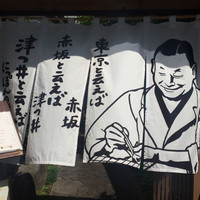 東京と云えば
赤坂
赤坂と云えば
津つ井
津つ井と云えば